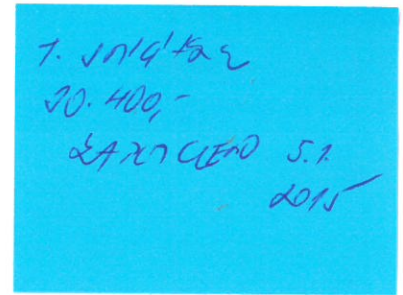 1. splátka
20.400,-
ZAPLACENO 5.1.
2015